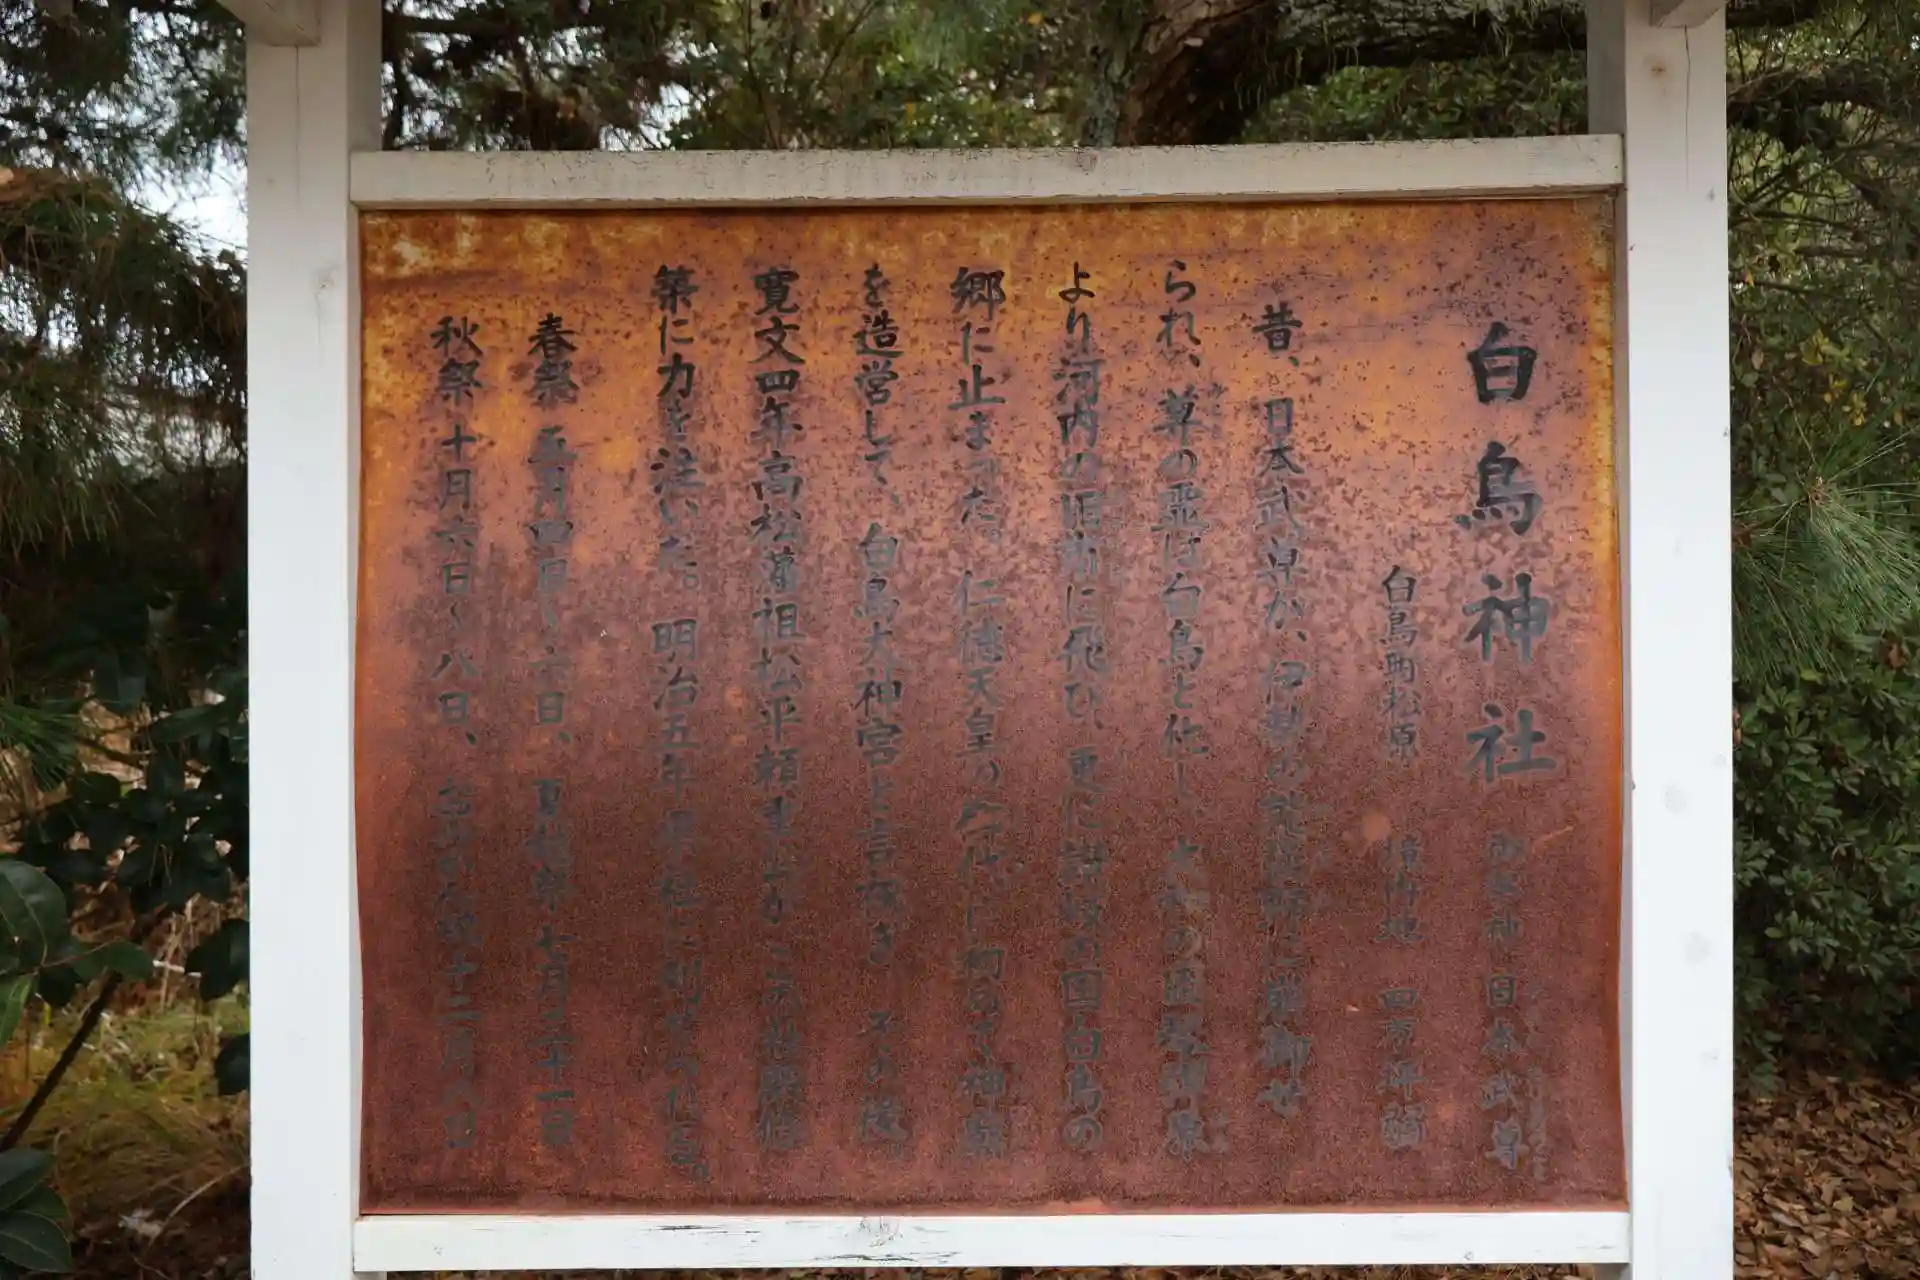 白鳥神社 御祭神 日本武尊
白鳥町松原 境内地 四万坪弱
昔、日本武尊が、伊勢の能褒野に崩御せ
られ、尊の霊は白鳥と化し、大和の琴弾原
より河内の旧市に飛び、更に讃岐の国白鳥の
郷に止まった。仁徳天皇の御代に初めて神廟
を造営して、白鳥大神宮と言
その後、
寛文四年高松藩祖松平頼重公がこの
築に力を注いだ。明治五年県社に列せられる。
春祭 五月四日〜六日、夏越祭七月三十一日
秋祭 十月六日〜八日、
十二月八日